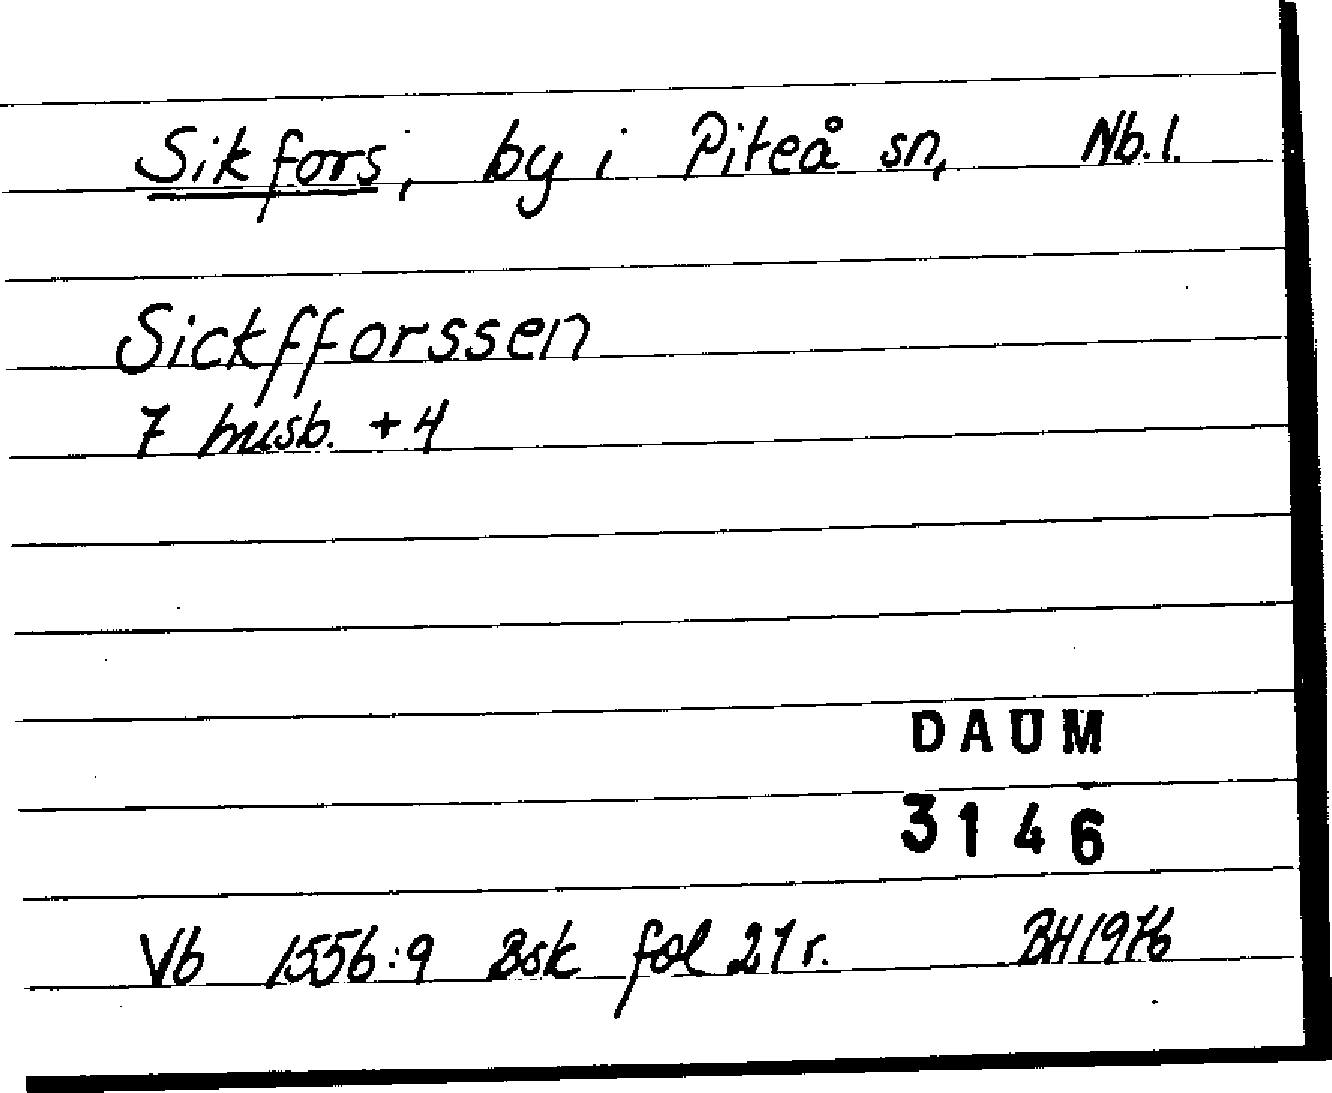 Sikfors, by i Piteå sn, Nb.l.
Sickfforssen
7 husb. + 4
DAUM
3146
Vb 1556:9 Bsk fol 21 r. BH 1976